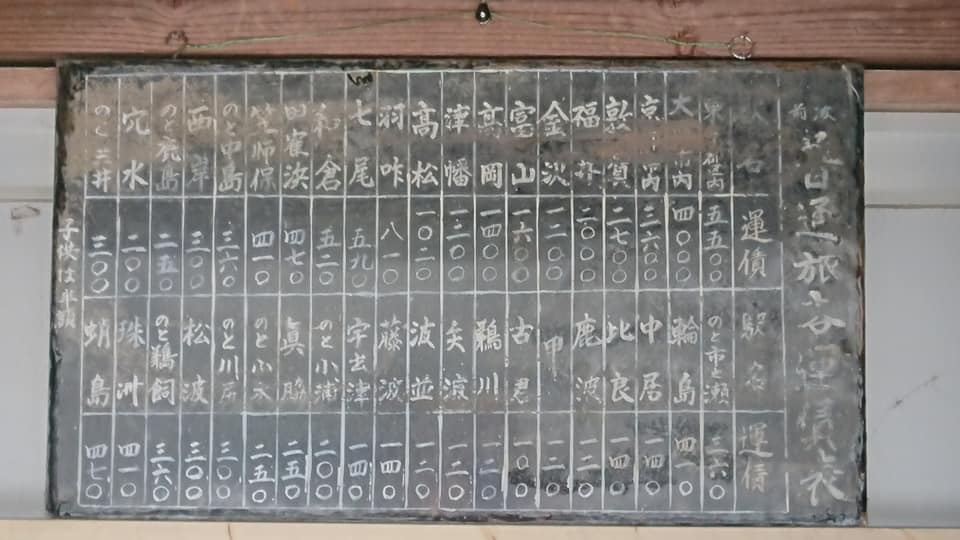 前波
通旅客運賃表
駅名 運賃 駅名 運賃
東京都区内 五五〇〇 のと市ノ瀬 三六〇
大阪市内 四〇〇〇 輪島 四一〇
京都市内 三六〇〇 中居 一四〇
敦賀 二七〇〇 比良 一四〇
福井 二〇〇〇 鹿波 一二〇
金沢 一二〇〇 甲 一二〇
富山 一六〇〇 古君 一〇〇
高岡 一四〇〇 鵜川 一二〇
津幡 一二〇〇 矢波 一二〇
高松 一〇二〇 波並 一二〇
羽咋 八一〇 藤波 一四〇
七尾 五九〇 宇出津 一四〇
和倉 五二〇 のと小浦 二〇〇
田寉浜 四七〇 真脇 二五〇
笠師保 四一〇 のと小木 二五〇
のと中島 三六〇 のと川尻 三〇〇
西岸 三〇〇 松波 三〇〇
のと鹿島 二五〇 のと鵜飼 三六〇
穴水 二〇〇 珠洲 四一〇
のと三井 三〇〇 蛸島 四七〇
子供は半額